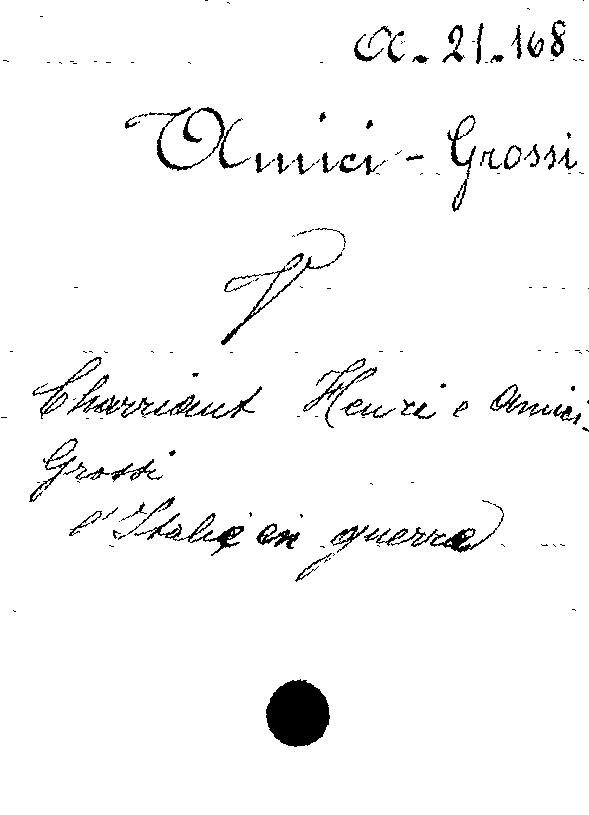 A. 21.168
Amici-Grossi
V
Charriaut Henri e Amici-
Grossi
l'Italie en guerre